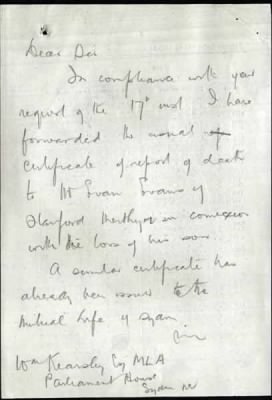 Dear Sir
In compliance with your
request of the 17th inst I have
forwarded the usual
certificate of report of death
to Mr Evan Evans of
Stanford Merthyr in connexion
with the loss of his son.
A similar certificate has
already been issued to the
Mutual Life of Sydn
Wm Kearsley Esq MLA
Parliament House
Sydn